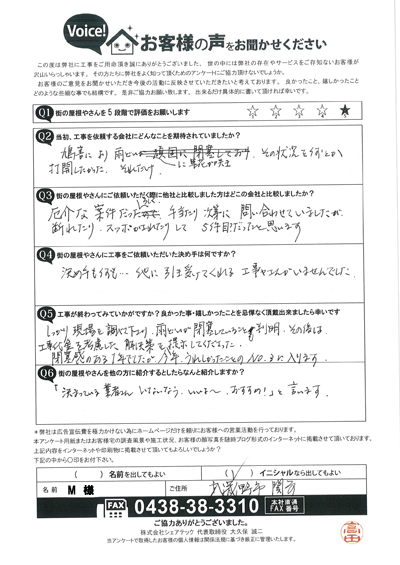 Voice!
お客様の声をお聞かせください
この度は弊社に工事をご用命頂き誠にありがとうございました。世の中には弊社の存在やサービスをご存知ないお客様が
沢山いらっしゃいます。その方たちに弊社をよく知って頂くためのアンケートにご協力頂けないでしょうか。
お客様のご意見をお聞かせいただき今後の活動に反映させていただきたいと考えております。良かったこと、嬉しかったこと
どのような些細な事でも結構です。是非ご協力お願い致します。出来るだけ具体的に書いて頂ければ幸いです。
Q1 街の屋根やさんを5段階で評価をお願いします
☆ ☆ ☆ ☆ ★
Q2 当初、工事を依頼する会社にどんなことを期待されていましたか?
雨どい 閉塞しており、その状況を何とか
打開したかった。それだけ
Q3 街の屋根やさんにご依頼いただく際に他社と比較しました方はどこの会社と比較しましたか?
厄介な案件だった 手当たり次第に問い合わせていましたが、
断れたり、スッポかされたりして 5件目だったと思います
Q4 街の屋根やさんに工事をご依頼いただいた決め手は何ですか?
決め手も何も… 他に引き受けてくれる工事やさんがいませんでした。
Q5 工事が終わってみていかがですか?良かった事・嬉しかったことを忌憚なく頂戴出来ましたら幸いです
しっかり現場を調べて下さり、雨どいが閉塞していることも判明。その後は、
工事代金を考慮した解決策を提示してくださった。
閉塞感のある1年でしたが、今年、うれしかったことのNo.3に入ります。
Q6 街の屋根やさんを他の方に紹介するとしたらなんと紹介しますか?
おすすめ!」と言います。
＊弊社は広告宣伝費を極力かけない為にホームページだけを頼りにお客様への営業活動を行っております。
本アンケート用紙またはお客様宅の調査風景や施工状況、お客様の顔写真を随時ブログ形式のインターネットに掲載させて頂いております。
上記内容をインターネットや印刷物に掲載させて頂いてもよろしいでしょうか?
下記の中から〇印をお付け下さい。
( ) 名前を出してもよい
( ) イニシャルなら出してもよい
名前 M 様
ご住所 武蔵野市 関前
FAX 0438-38-3310 本社直通 FAX番号
ご協力ありがとうございました。
株式会社シェアテック 代表取締役 大久保 誠二
当アンケートで取得したお客様の個人情報は関係法規に基づき厳正に管理いたします。